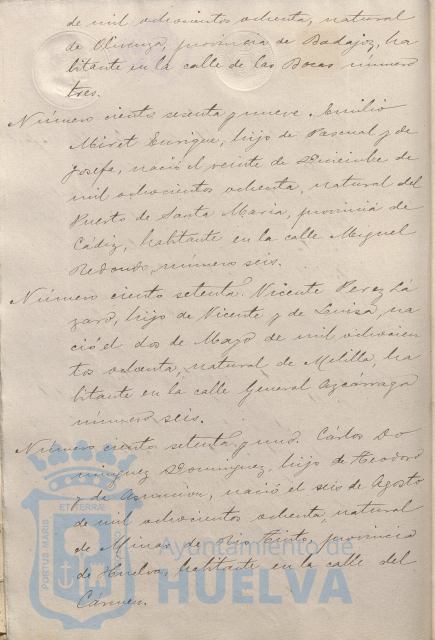 de mil ochocientos ochenta, natural
de Olivenza, provincia de Badajoz, ha
bitante en la calle de las Bocas número
tres.
Número ciento sesenta y nueve. Emilio
Miret Enrique, hijo de Pascual y de
Josefa, nació el veinte de Diciembre de
mil ochocientos ochenta, natural del
Puerto de Santa Maria, provincia de
Cádiz, habitante en la calle Miguel
Redondo, número seis.
Número ciento setenta. Vicente Perez Lá
zaro, hijo de Vicente y de Luisa, na
ció el dos de Mayo de mil ochocien
tos ochenta, natural de Melilla, ha
bitante en la calle General Azcárraga
número seis.
Número ciento setenta y uno. Cárlos Do
minguez Dominguez, hijo de Teodoro
y de Asuncion, nació el seis de Agosto
de mil ochocientos ochenta, natural
de Minas de Rio Tinto, provincia
de Huelva, habitante en la calle del
Cármen.
PORTUS MARIS ET TERRÆ
Ayuntamiento de
HUELVA